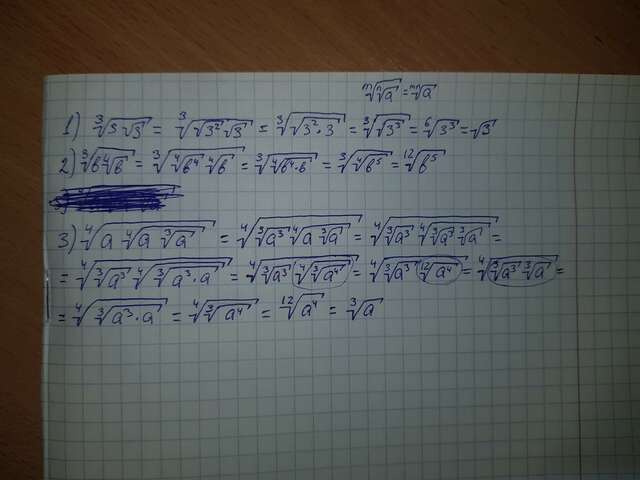 ᵐ√ⁿ√a = ᵐⁿ√a
1) ³√(3√3) = ³√(√3² √3) = ³√√(3²·3) = ³√√3³ = ⁶√3³ = √3
2) ³√(b ⁴√b) = ³√(⁴√b⁴ ⁴√b) = ³√⁴√(b⁴·b) = ³√⁴√b⁵ = ¹²√b⁵
3) ⁴√(a ⁴√(a ³√a)) = ⁴√(³√a³ ⁴√(a ³√a)) = ⁴√(³√a³ ⁴√(³√a³ ³√a)) =
= ⁴√(³√a³ ⁴√³√(a³·a)) = ⁴√(³√a³ ⁴√³√a⁴) = ⁴√(³√a³ ¹²√a⁴) = ⁴√(³√a³ ³√a) =
= ⁴√³√(a³·a) = ⁴√³√a⁴ = ¹²√a⁴ = ³√a